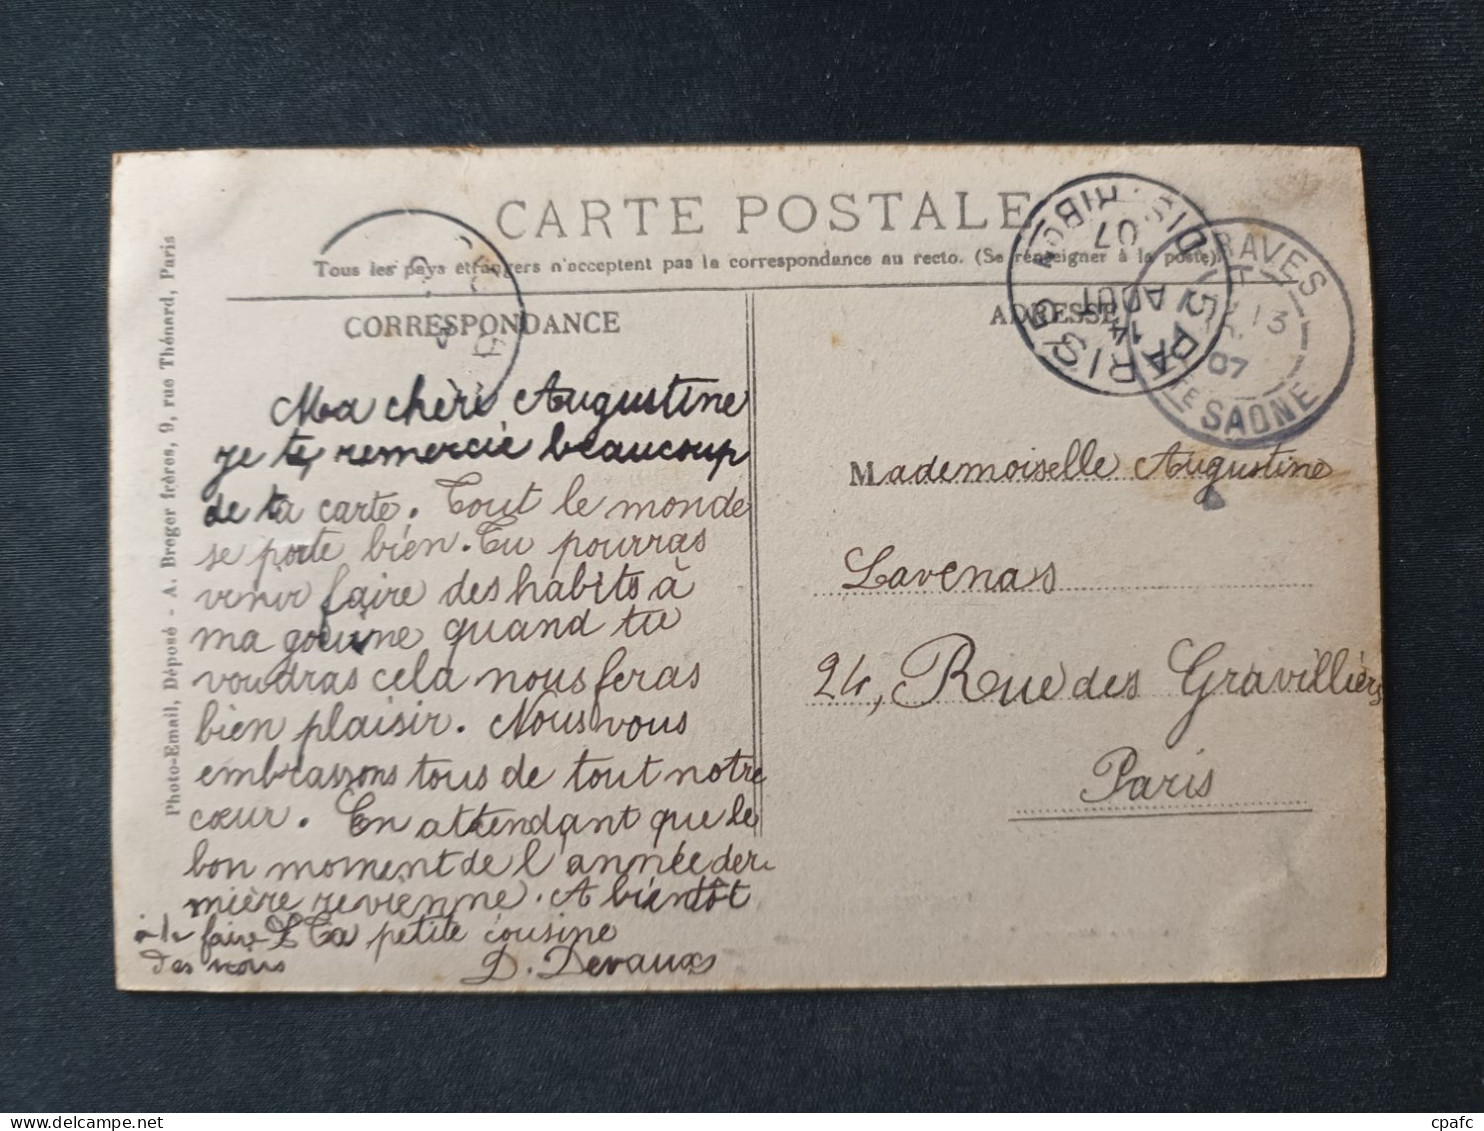 CARTE POSTALE
Tous les pays étrangers n'acceptent pas la correspondance au recto. (Se renseigner à la poste)
CORRESPONDANCE
ADRESSE
Photo-Email, Déposé - A. Breger frères, 9, rue Thénard, Paris
Ma chèri Augustine
je te remercie beaucoup
de ta carte. Tout le monde
se porte bien. Tu pourras
venir faire des habits à
ma quand tu
voudras cela nous feras
bien plaisir. Nous vous
embrassons tous de tout notre
cœur. En attendant que le
bon moment de l'année der
mière revienne. A bientôt
Ta petite cousine
D. Devaux
Mademoiselle Augustine
Lavenas
24, Rue des Gravilliers
Paris
PARIS
DISTRIBON
14
AOUT
07
RAVES
13
07
SAONE
cpafc